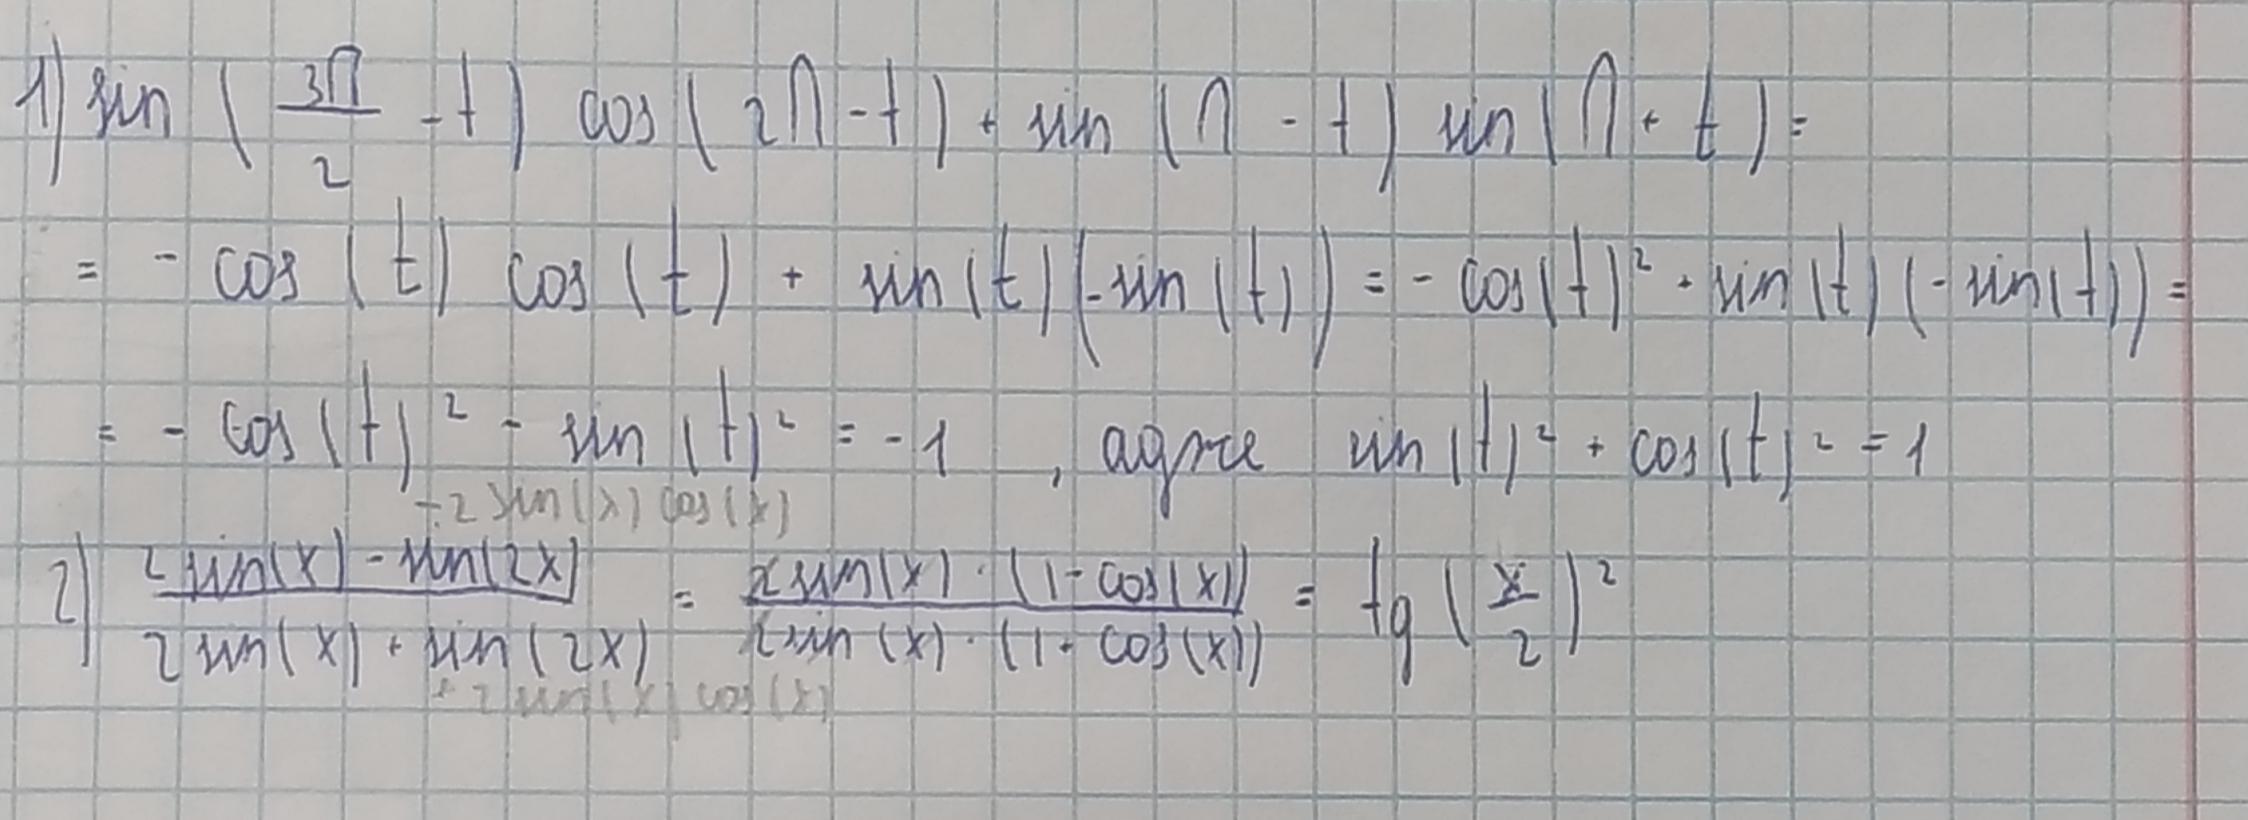 1) sin (3П/2 - t) cos (2П - t) + sin (П - t) sin (П + t) =
= - cos (t) cos (t) + sin (t) (-sin (t)) = - cos (t)² + sin (t) (- sin (t)) =
= - cos (t)² - sin (t)² = -1 , адже sin (t)² + cos (t)² = 1
- 2 sin(x) cos(x)
2) 2 sin(x) - sin(2x) / 2 sin(x) + sin(2x) = 2 sin(x) · (1 - cos(x)) / 2 sin(x) · (1 + cos(x)) = tg (x/2)²
+ 2 sin(x) cos(x)